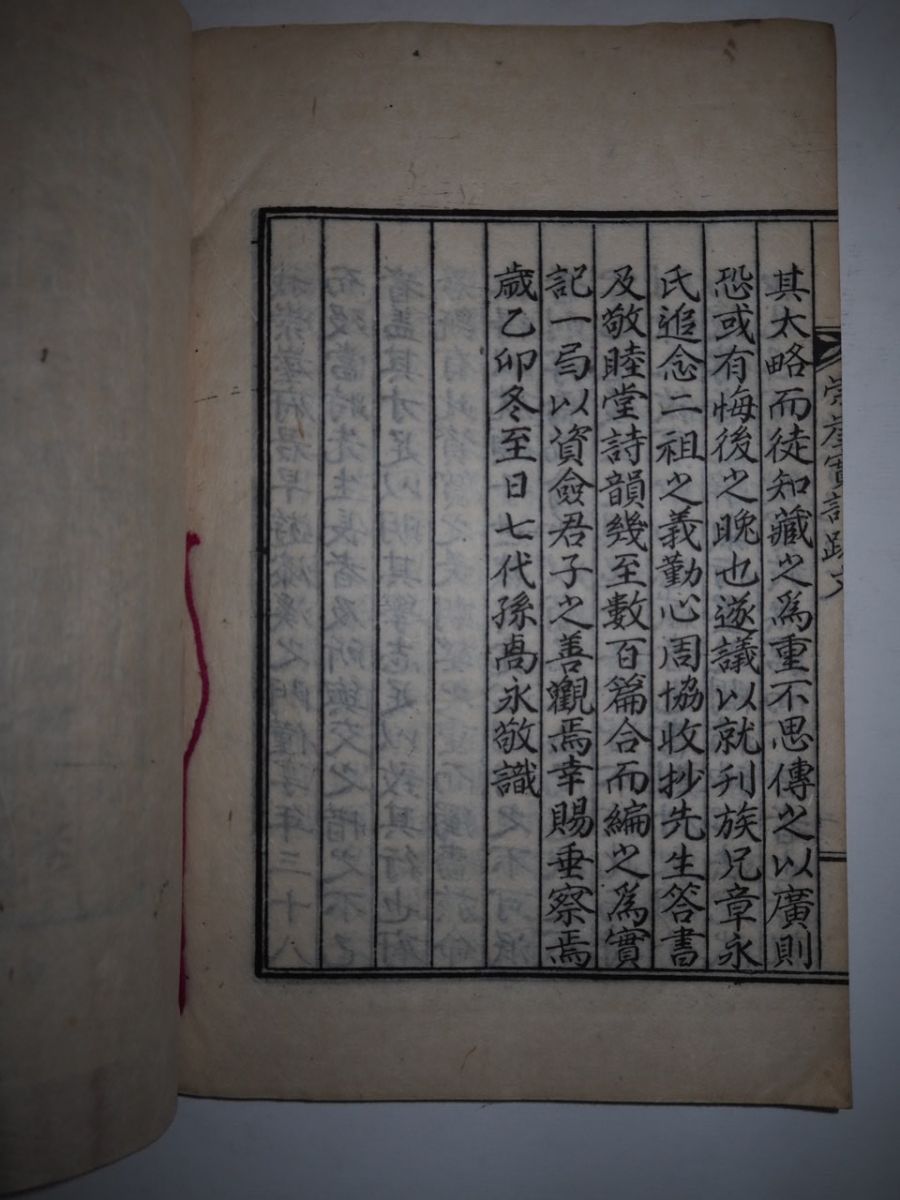 其太略而徒知藏之爲重不思傳之以廣則
恐或有悔後之晚也遂議以就刋族兄章永
氏追念二祖之義勤心周協收抄先生答書
及敬睦堂詩韻幾至數百篇合而編之爲實
記一局以資僉君子之善觀焉幸賜垂察焉
歲乙卯冬至日七代孫髙永敬識
崖實記跋文